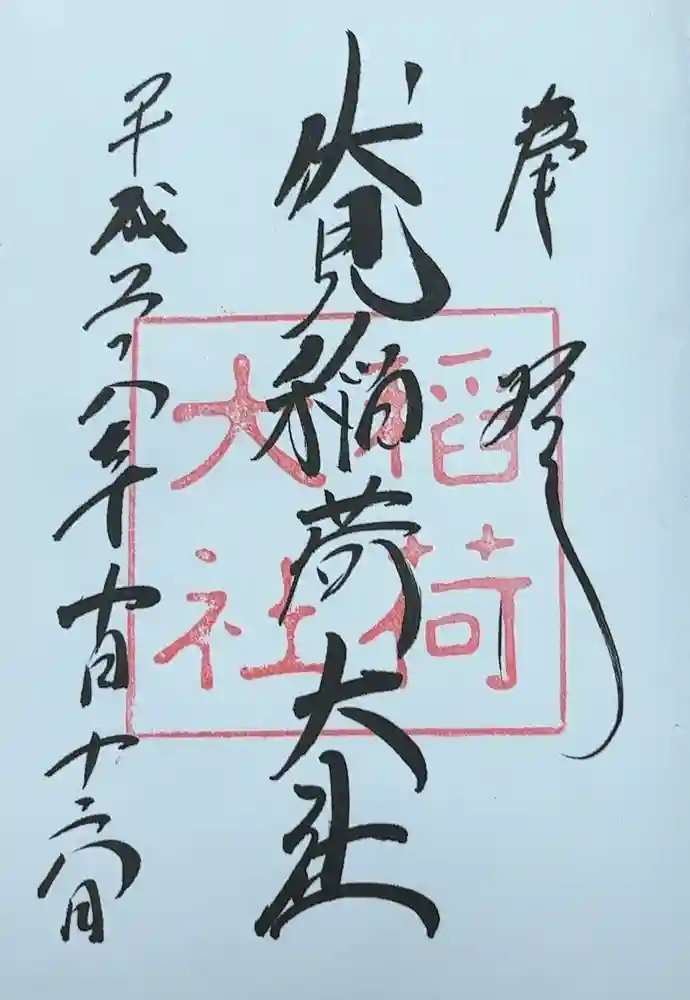 奉拝
伏見稲荷大社
平成二八年 月十 日
稲荷
大社